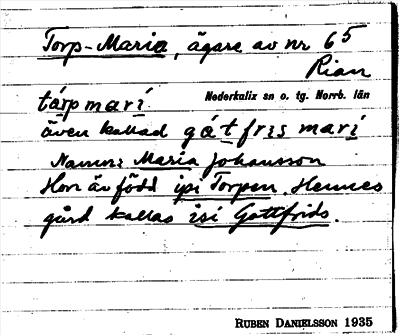 Torp-Maria, ägare av nr 65
Rian
tårp marí. Nederkalix sn o. tg. Norrb. län
även kallad gátfris marí
Namn: Maria Johansson
Hon är född ipi Torpen. Hennes
gård kallas isi Gottfrids.
RUBEN DANIELSSON 1935